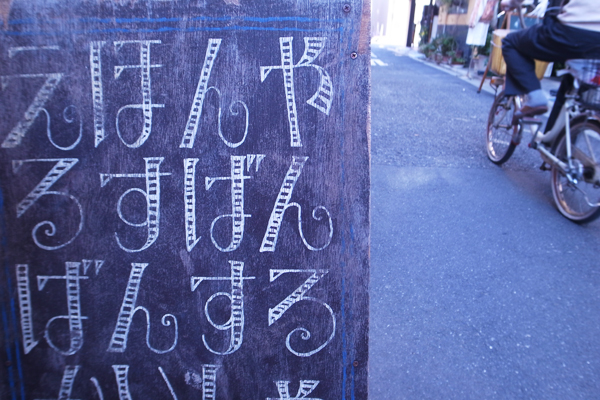 えほんや
るすばん
ばんする